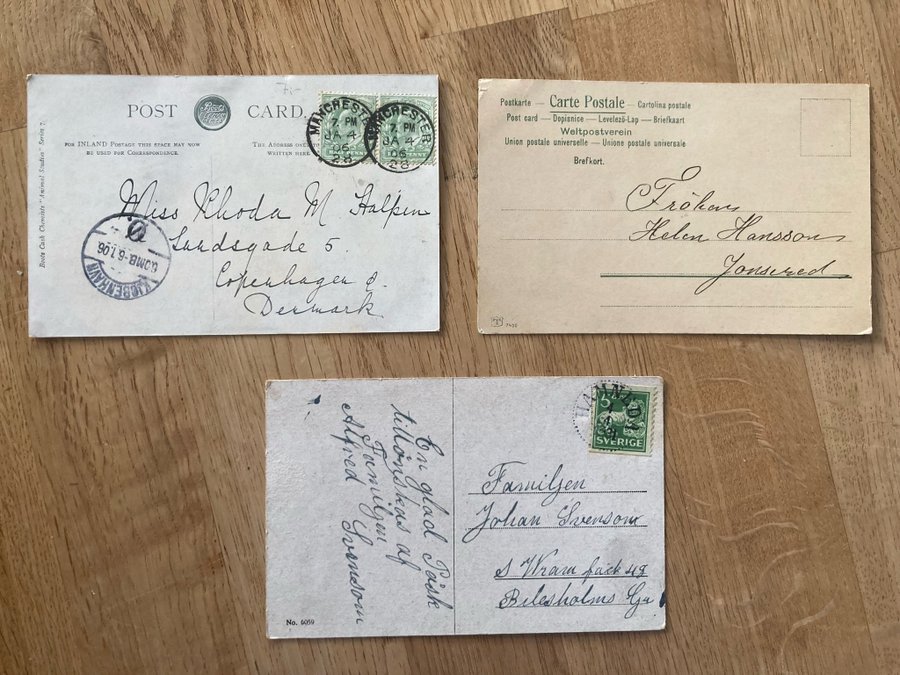 POST CARD.
FOR INLAND POSTAGE THIS SPACE MAY NOW
BE USED FOR CORRESPONDENCE.
THE ADDRESS
WRITTEN HERE.
Boots Cash Chemists "Animal Studies" Series 7.
MANCHESTER
7. PM
JA 4
06
28
MANCHESTER
7. PM
JA 4
06
28
Miss Rhoda M Halpin
Landsgade 5.
Copenhagen
Denmark
KJØBENHAVN
6.1.06
Postkarte — Carte Postale — Cartolina postale
Post card — Dopisnice — Levelező-Lap — Briefkaart
Weltpostverein
Union postale universelle — Unione postale universale
Brefkort.
Fröken
Helen Hansson
Jonsered
7430
En glad Påsk
tillönskas af
Familjen
Alfred Svensom
No. 6059
5
SVERIGE
Familjen
Johan Svensom
S Wram fack 48
Bilesholms Ga